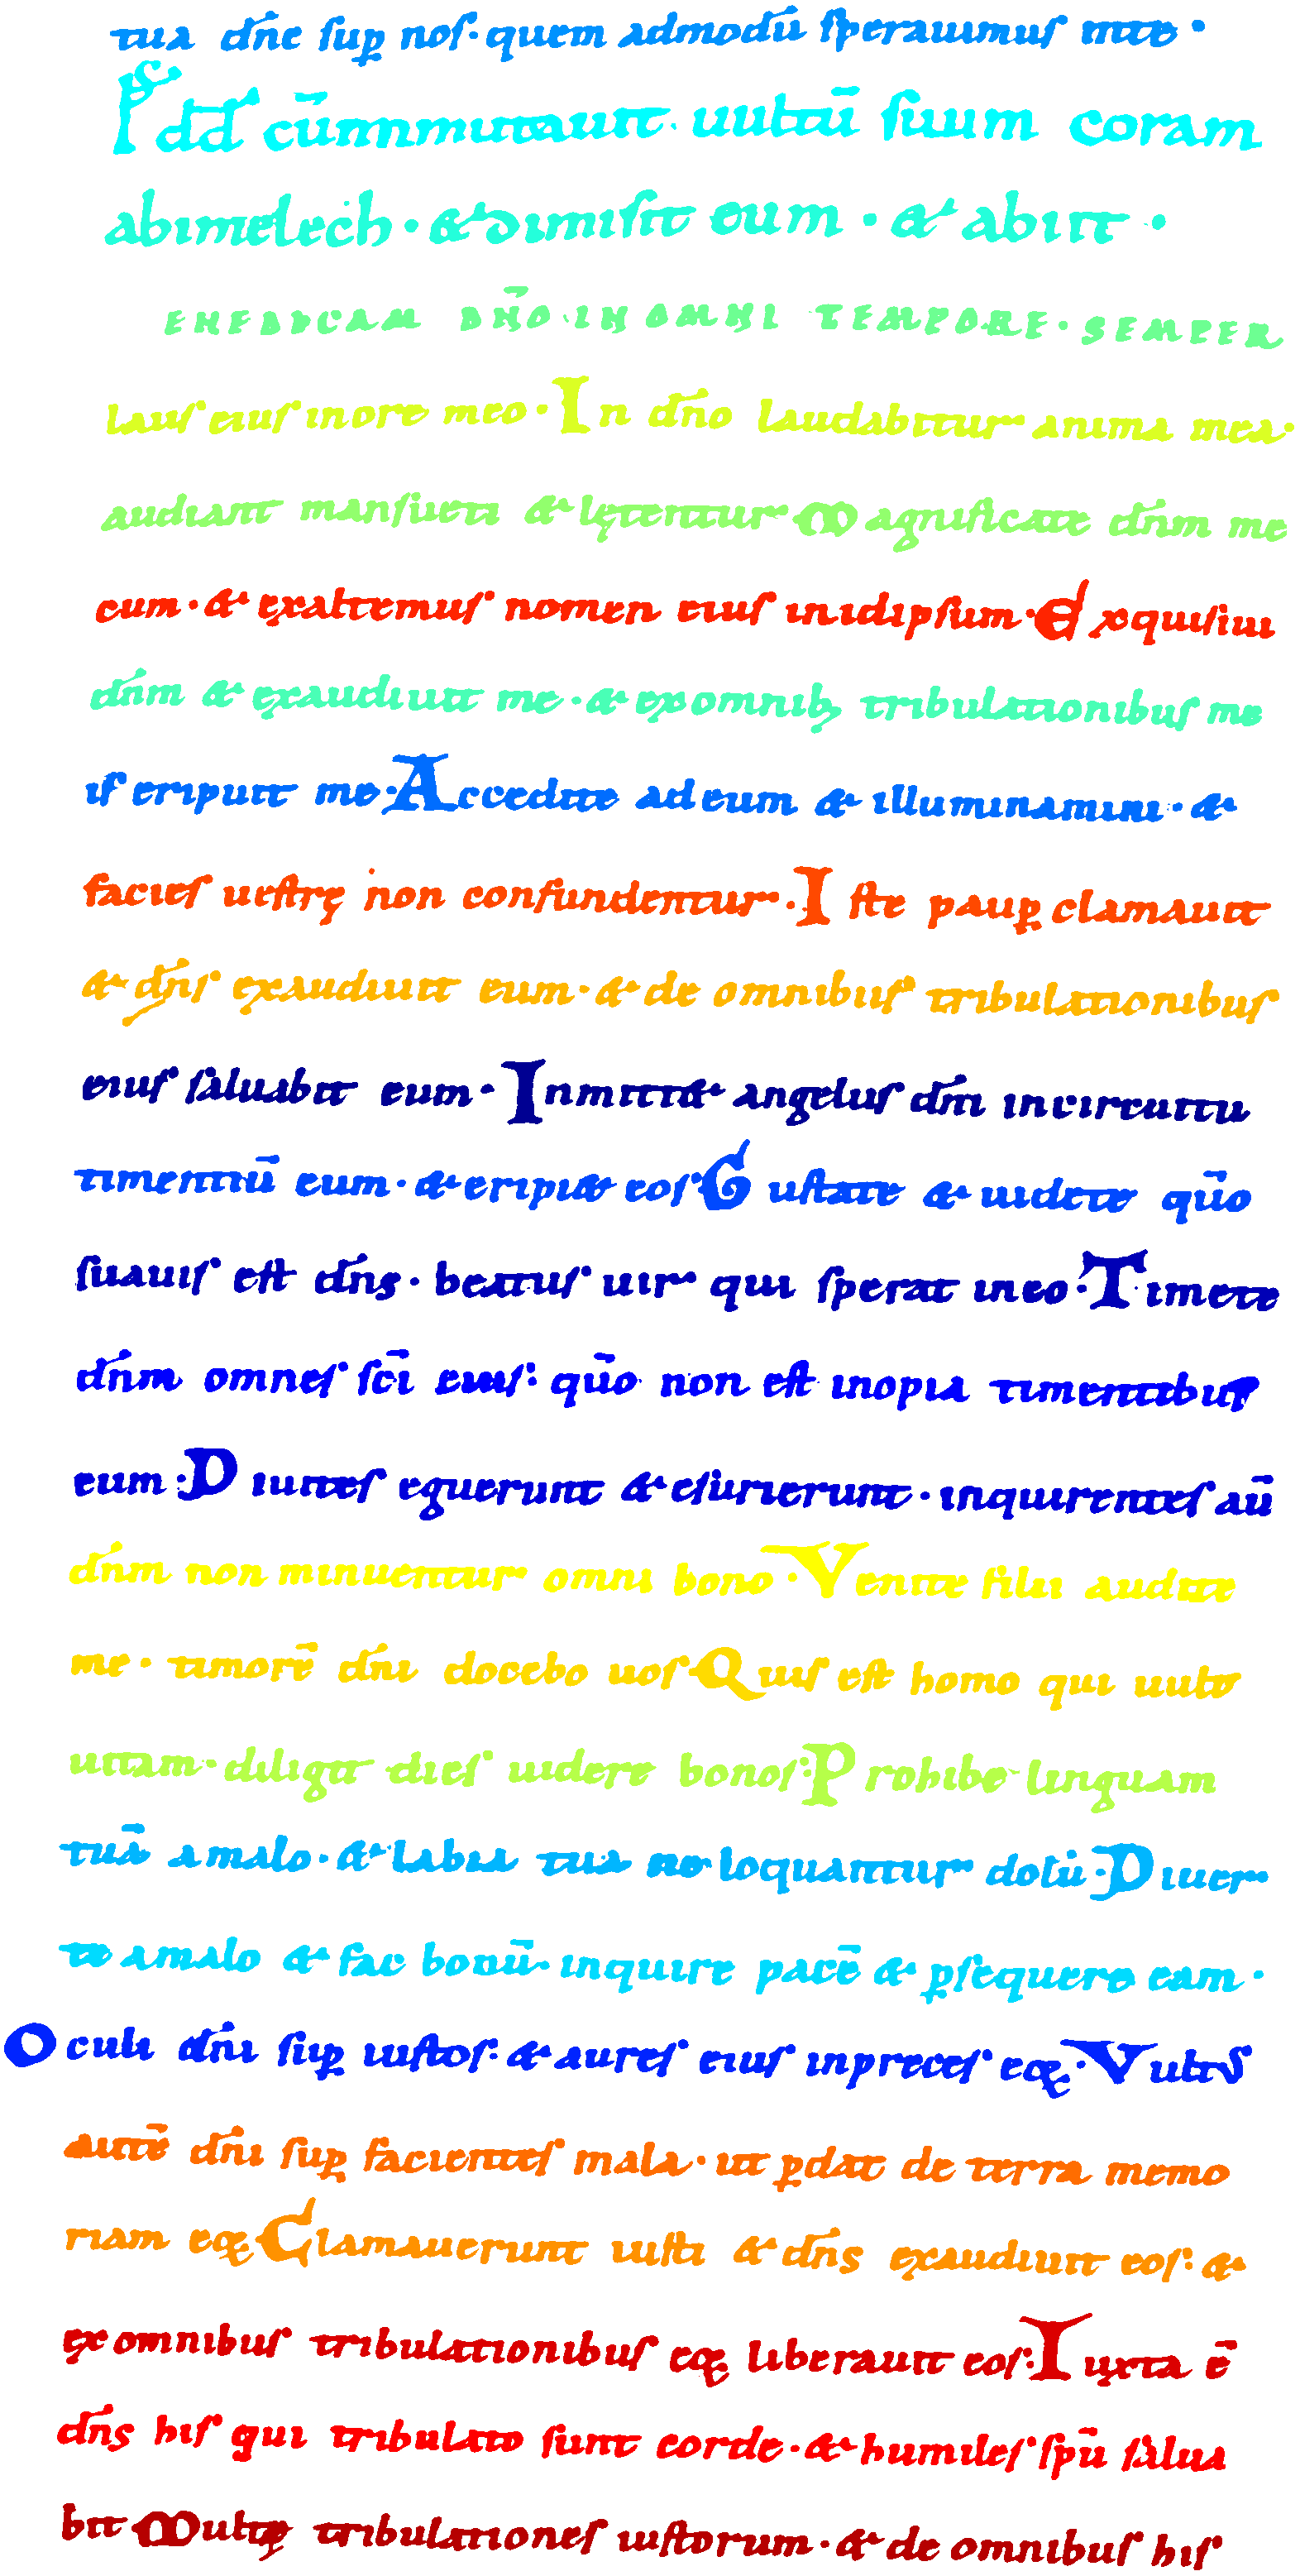 tua dn̄e sup̱ nos · quem admodū sperauimus inte ·
Ps dd cū inmutauit uultū suum coram
abimelech · & dimisit eum · & abiit ·
ENEDICAM DN̄O IN OMNI TEMPORE · SEMPER
laus eius inore meo · In dn̄o laudabitur anima mea ·
audiant mansueti & lętentur Magnificate dn̄m me
cum · & exaltemus nomen eius inidipsum · Exquisiui
dn̄m & exaudiuit me · & ex omnib; tribulationibus me
is eripuit me · Accedite ad eum & illuminamini · &
facies uestrę non confundentur · Iste paup̱ clamauit
& dn̄s exaudiuit eum · & de omnibus tribulationibus
eius saluabit eum · Inmitt& angelus dn̄i incircuitu
timentiū eum · & eripi& eos · Gustate & uidete qūo
suauis est dn̄s · beatus uir qui sperat ineo · Timete
dn̄m omnes sc̄i eius · qūo non est inopia timentibus
eum · Diuites eguerunt & esurierunt · inquirentes aū
dn̄m non minuentur omni bono · Venite filii audite
me · timorē dn̄i docebo uos · Quis est homo qui uult
uitam · diligit dies uidere bonos · Prohibe linguam
tuā a malo · & labia tua ne loquantur dolū · Diuer
te a malo & fac bonū · inquire pacē & p̱sequere eam ·
Oculi dn̄i sup̱ iustos · & aures eius inpreces eoꝝ · Vultus
autē dn̄i sup̱ facientes mala · ut p̱dat de terra memo
riam eoꝝ Clamauerunt iusti & dn̄s exaudiuit eos · &
ex omnibus tribulationibus eoꝝ liberauit eos · Iuxta ē
dn̄s his qui tribulato sunt corde · & humiles spū salua
bit Multę tribulationes iustorum · & de omnibus his